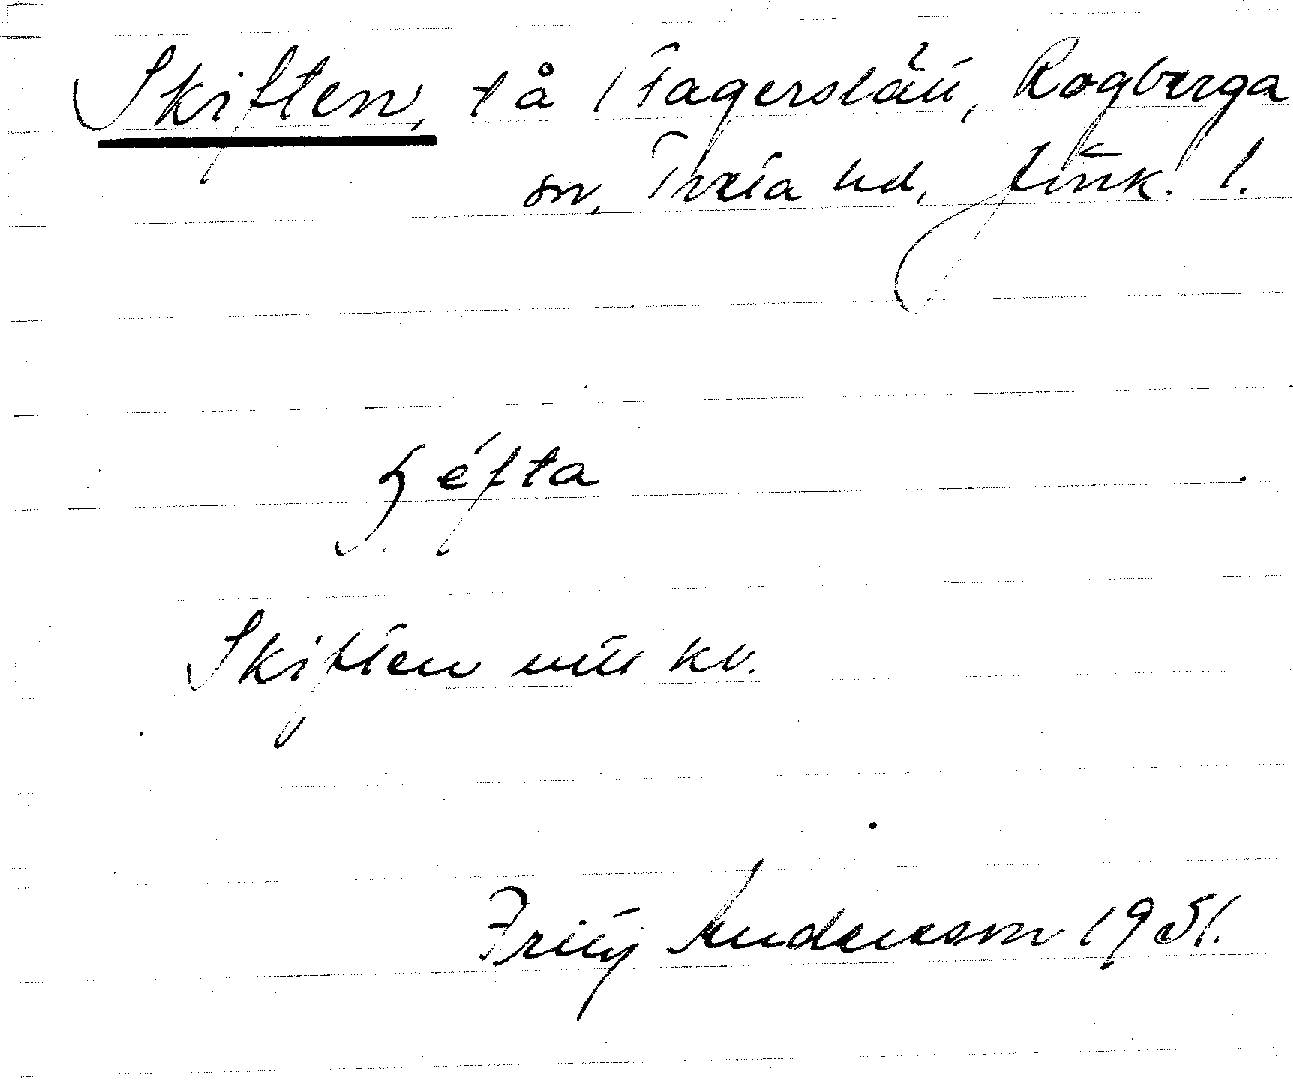 Skiften, tå i Fagerslätt, Rogberga
sn, Tveta hd, Jönk. l.
ʒéfta
Skiften utt kv.
Frity Andersson 1951.